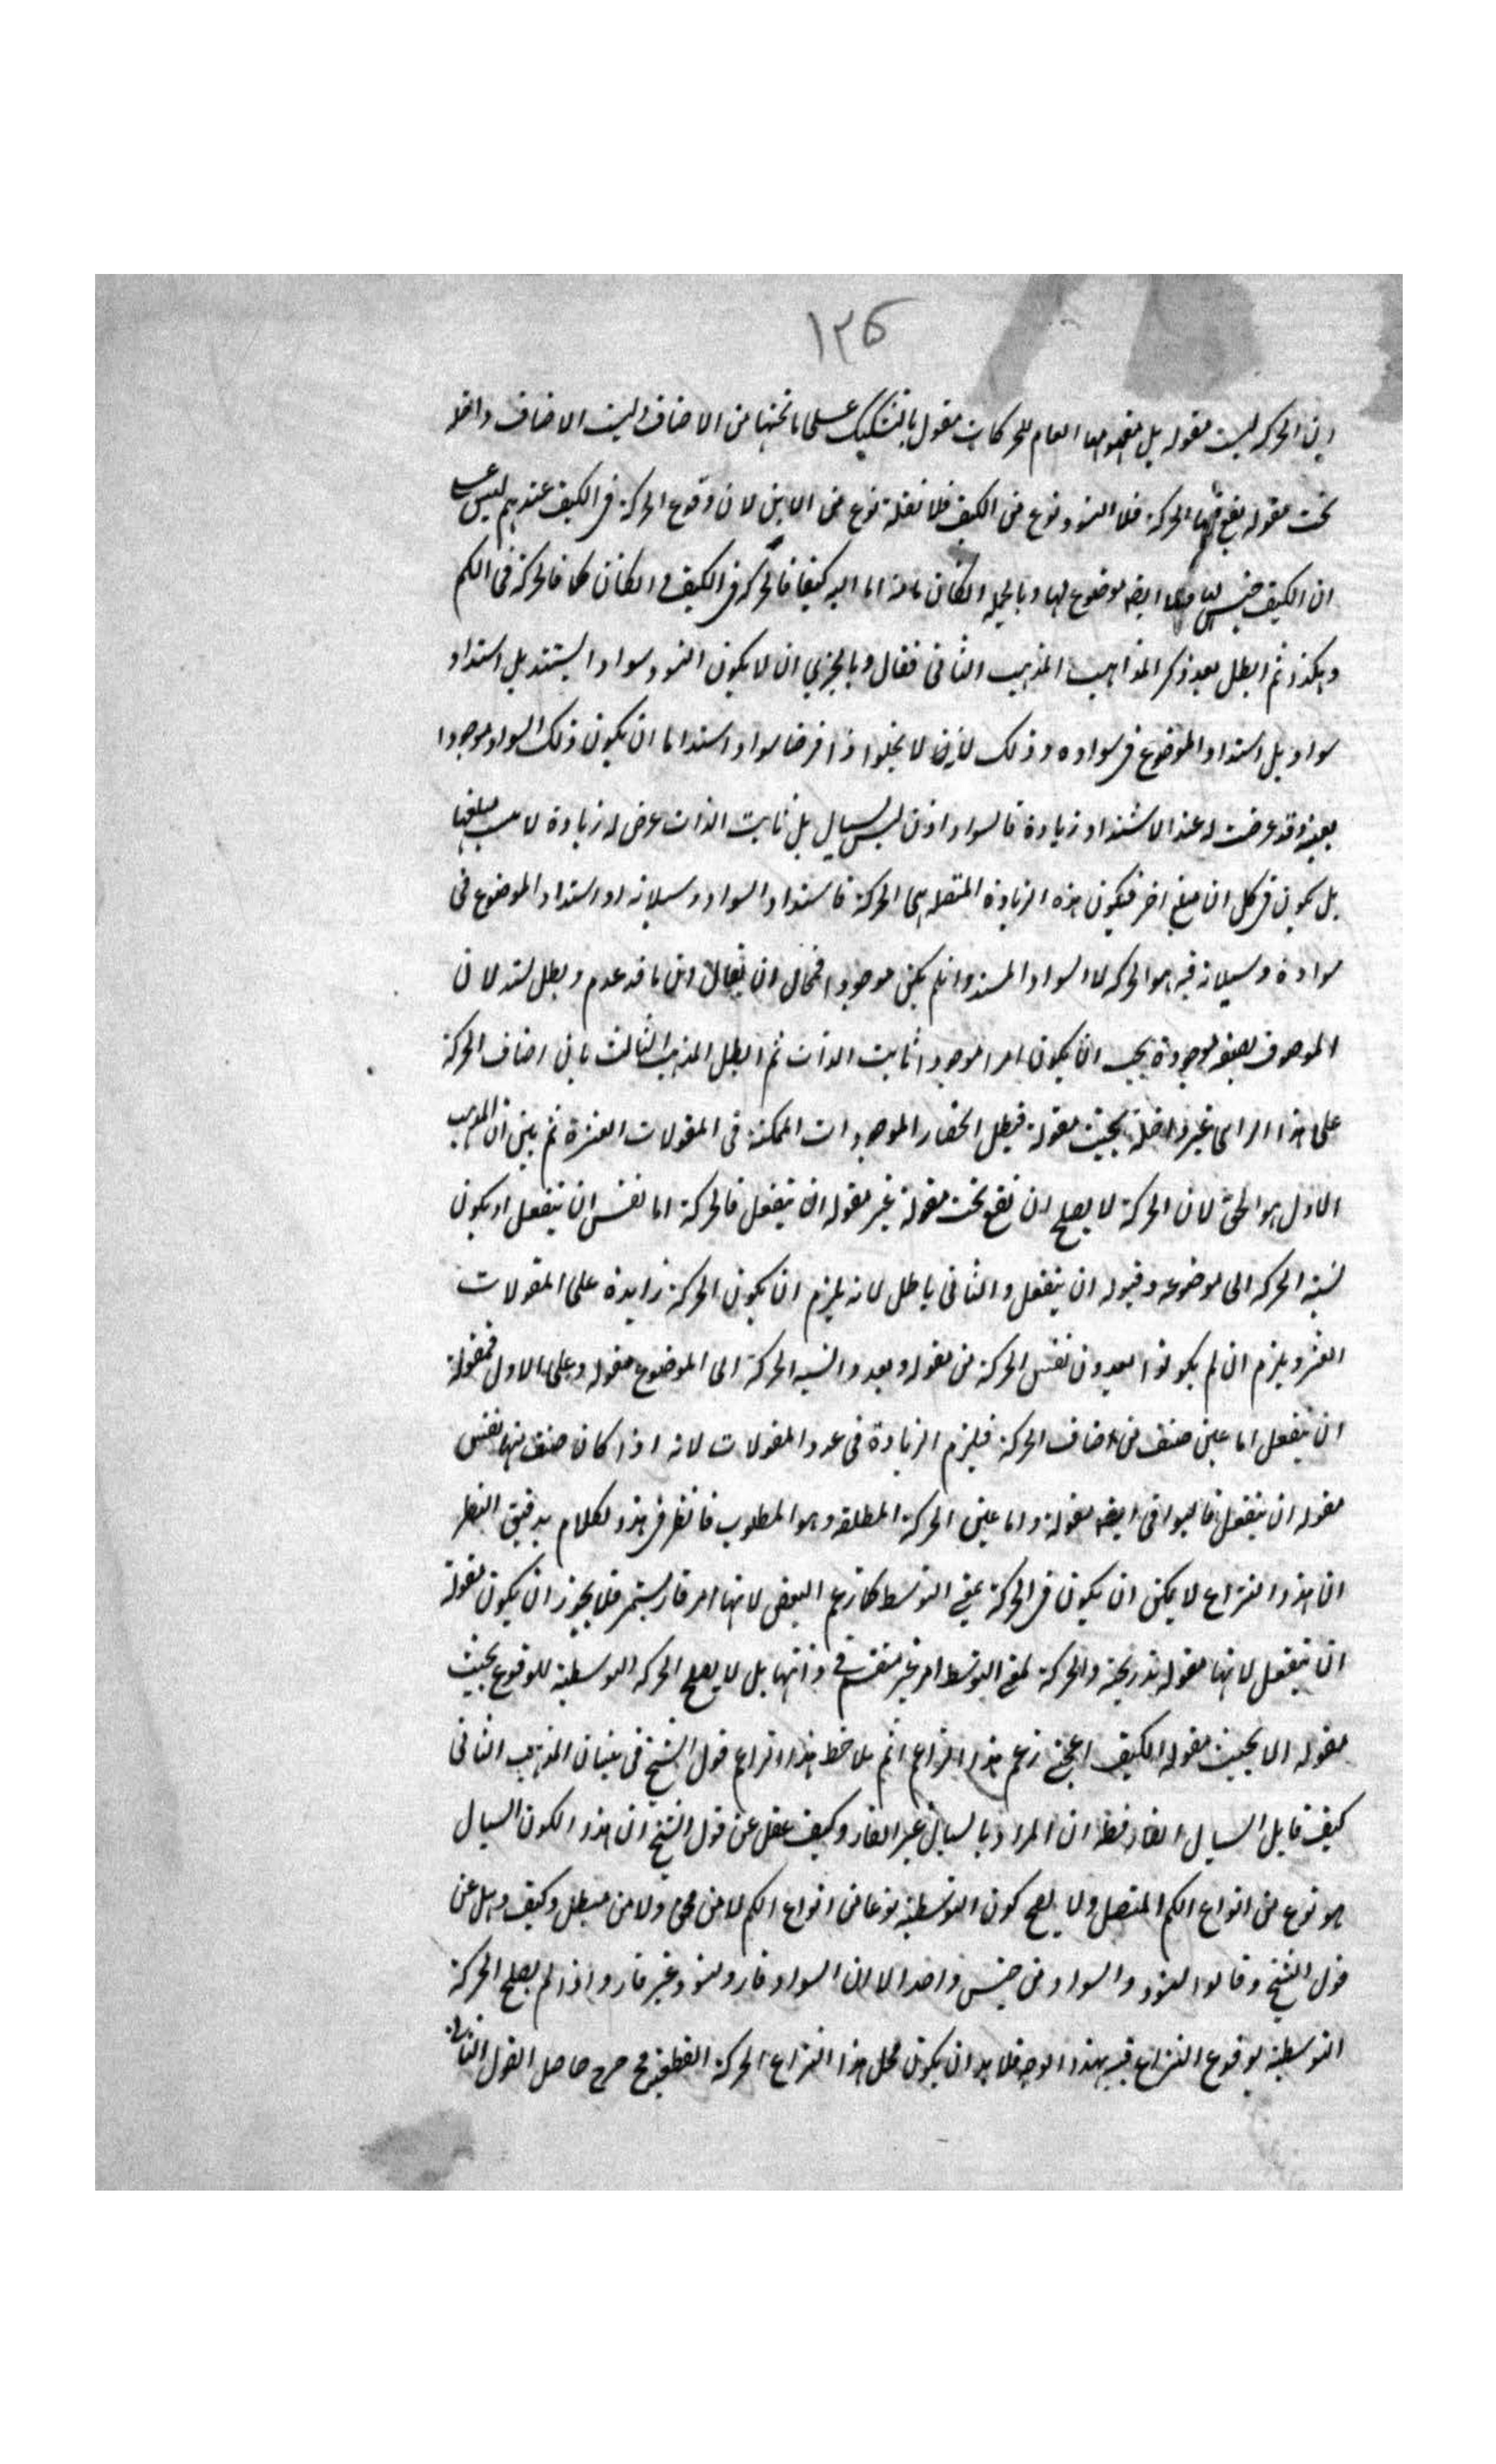 ١٣٥
ان الحركة ليست مقولة بل مفهومها العام للحركات مقول بالتشكيك على ما تحتها من الاصناف وليست الاصناف داخلة
تحت مقولة يقع فيها الحركة فلا التسود نوع من الكيف فلا نقلة نوع من الاين لان وقوع الحركة في الكيف عندهم ليس على
ان الكيف جنس لها ولا ايضا موضوع لها وبالجملة اما اليه كيفا فالحركة في الكيف وانكان كما فالحركة في الكم
وهكذا ثم ابطل بعد ذكر المذاهب المذهب الثاني فقال وبالحري ان لا يكون التسود سوادا يشتد بل اشتداد
سواد بل اشتداد الموضوع في سواده وذلك لانه لا يخلوا اذا فرضنا سوادا اشتد اما ان يكون ذلك السواد موجودا
بعينه وقد عرضت له عند الاشتداد زيادة فالسواد اذن ليس بسيال بل ثابت الذات عرض له زيادة لا مبلغها
بل يكون في كل ان مبلغ اخر فيكون هذه الزيادة المتصلة هي الحركة فاشتداد السواد وسيلانه او اشتداد الموضوع في
سواده وسيلانه فيه هو الحركة لا السواد المشتد وان لم يكن موجودا فمحال ان يقال ان ما قد عدم وبطل يشتد لان
الموصوف بصفة موجودة يجب ان يكون امرا موجودا ثابت الذات ثم ابطل المذهب الثالث بان اصناف الحركة
على هذا الراي غير داخلة تحت مقولة فبطل انحصار الموجودات الممكنة في المقولات العشرة ثم بين ان المذهب
الاول هو الحق لان الحركة لا يصلح ان تقع تحت مقولة غير مقولة ان ينفعل فالحركة اما نفس ان ينفعل او يكون
نسبة الحركة الى موضوعه وقبوله ان ينفعل والثاني باطل لانه يلزم ان يكون الحركة زايدة على المقولات
العشر ويلزم ان لم يكونوا يعدون نفس الحركة من مقولة ويعدوا نسبة الحركة الى الموضوع مقولة وعلى الاول فمقولة
ان ينفعل اما عين صنف من اصناف الحركة فيلزم الزيادة في عدد المقولات لانه اذا كان صنف منها نفس
مقولة ان ينفعل فالبواقي ايضا مقولة واما عين الحركة المطلقة وهو المطلوب فانظر في هذا الكلام بدقيق النظر
ان هذا النزاع لا يمكن ان يكون في الحركة بمعنى التوسط كما زعم البعض لانها امر قار مستمر فلا يجوز ان يكون مقولة
ان ينفعل لانها مقولة تدريجية والحركة بمعنى التوسط امر غير منقسم في ذاتها بل لا يصلح الحركة التوسطية للوقوع تحت
مقولة الا تحت مقولة الكيف زعم هذا الزاعم الم يلاحظ هذا الزاعم قول الشيخ في بيان المذهب الثاني
كيف قابل السيال القار فظن ان المراد بالسيال غير القار وكيف غفل عن قول الشيخ ان هذا الكون السيال
هو نوع من انواع الكم المتصل ولا يصح كون التوسطية نوعا من انواع الكم لا من محق ولا من مبطل وكيف ذهل عن
قول الشيخ وقالوا التسود والسواد من جنس واحد الا ان السواد قار والتسود غير قار واذا لم يصلح الحركة
التوسطية لوقوع النزاع فيه بهذا الوجه فلا بد ان يكون محل هذا النزاع الحركة القطعية حاصل القول الثاني